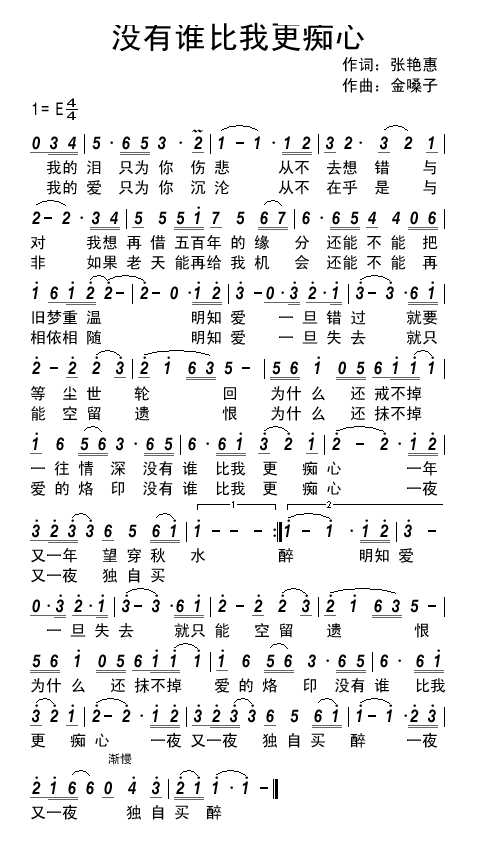 没有谁比我更痴心
作词：张艳惠
作曲：金嗓子
1= E 4/4
0 3 4 | 5 · 6 5 3 · 2 | 1 - 1 · 1 2 | 3 2 · 3 2 1 |
我的泪 只为你 伤悲 从不 去想 错 与
我的爱 只为你 沉沦 从不 在乎 是 与
2 - 2 · 3 4 | 5 5 5 5 1 7 5 6 7 | 6 · 6 5 4 4 0 6 |
对 我想再借五百年的缘 分 还能不能把
非 如果老天能再给我机 会 还能不能再
1 6 1 2 2 - | 2 - 0 · 1 2 | 3 - 0 · 3 2 · 1 | 3 - 3 · 6 1 |
旧梦重温 明知爱 一旦错过 就要
相依相随 明知爱 一旦失去 就只
2 - 2 2 3 | 2 1 6 3 5 - | 5 6 1 0 5 6 1 1 1 |
等 尘世 轮 回 为什么 还戒不掉
能 空留 遗 恨 为什么 还抹不掉
1 6 5 6 3 · 6 5 | 6 · 6 1 3 2 1 | 2 - 2 · 1 2 |
一往情深 没有谁 比我更痴心 一年
爱的烙印 没有谁 比我更痴心 一夜
1 2
3 2 3 3 6 5 6 1 | 1 - - - :‖ 1 - 1 · 1 2 | 3 -
又一年 望穿秋 水 醉 明知爱
又一夜 独自买
0 · 3 2 · 1 | 3 - 3 · 6 1 | 2 - 2 2 3 | 2 1 6 3 5 - |
一旦失去 就只能 空留 遗 恨
5 6 1 0 5 6 1 1 1 | 1 6 5 6 3 · 6 5 | 6 · 6 1 |
为什么 还抹不掉 爱的烙 印 没有谁 比我
3 2 1 | 2 - 2 · 1 2 | 3 2 3 3 6 5 6 1 | 1 - 1 · 2 3 |
更 痴心 一夜 又一夜 独自买 醉 一夜
渐慢
2 1 6 6 0 4 3 | 2 1 1 · 1 - ‖
又一夜 独自买 醉